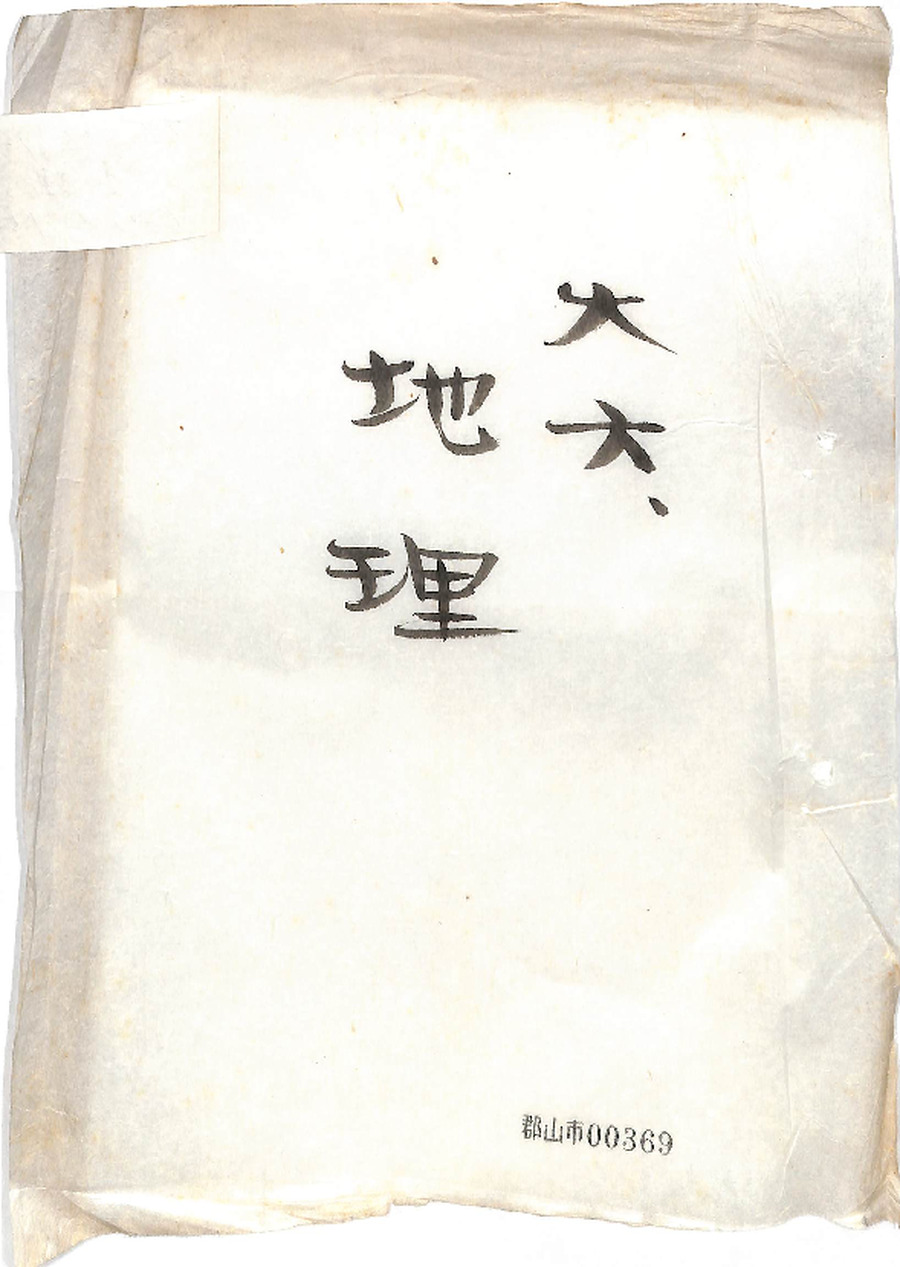 大大、
地理
郡山市00369